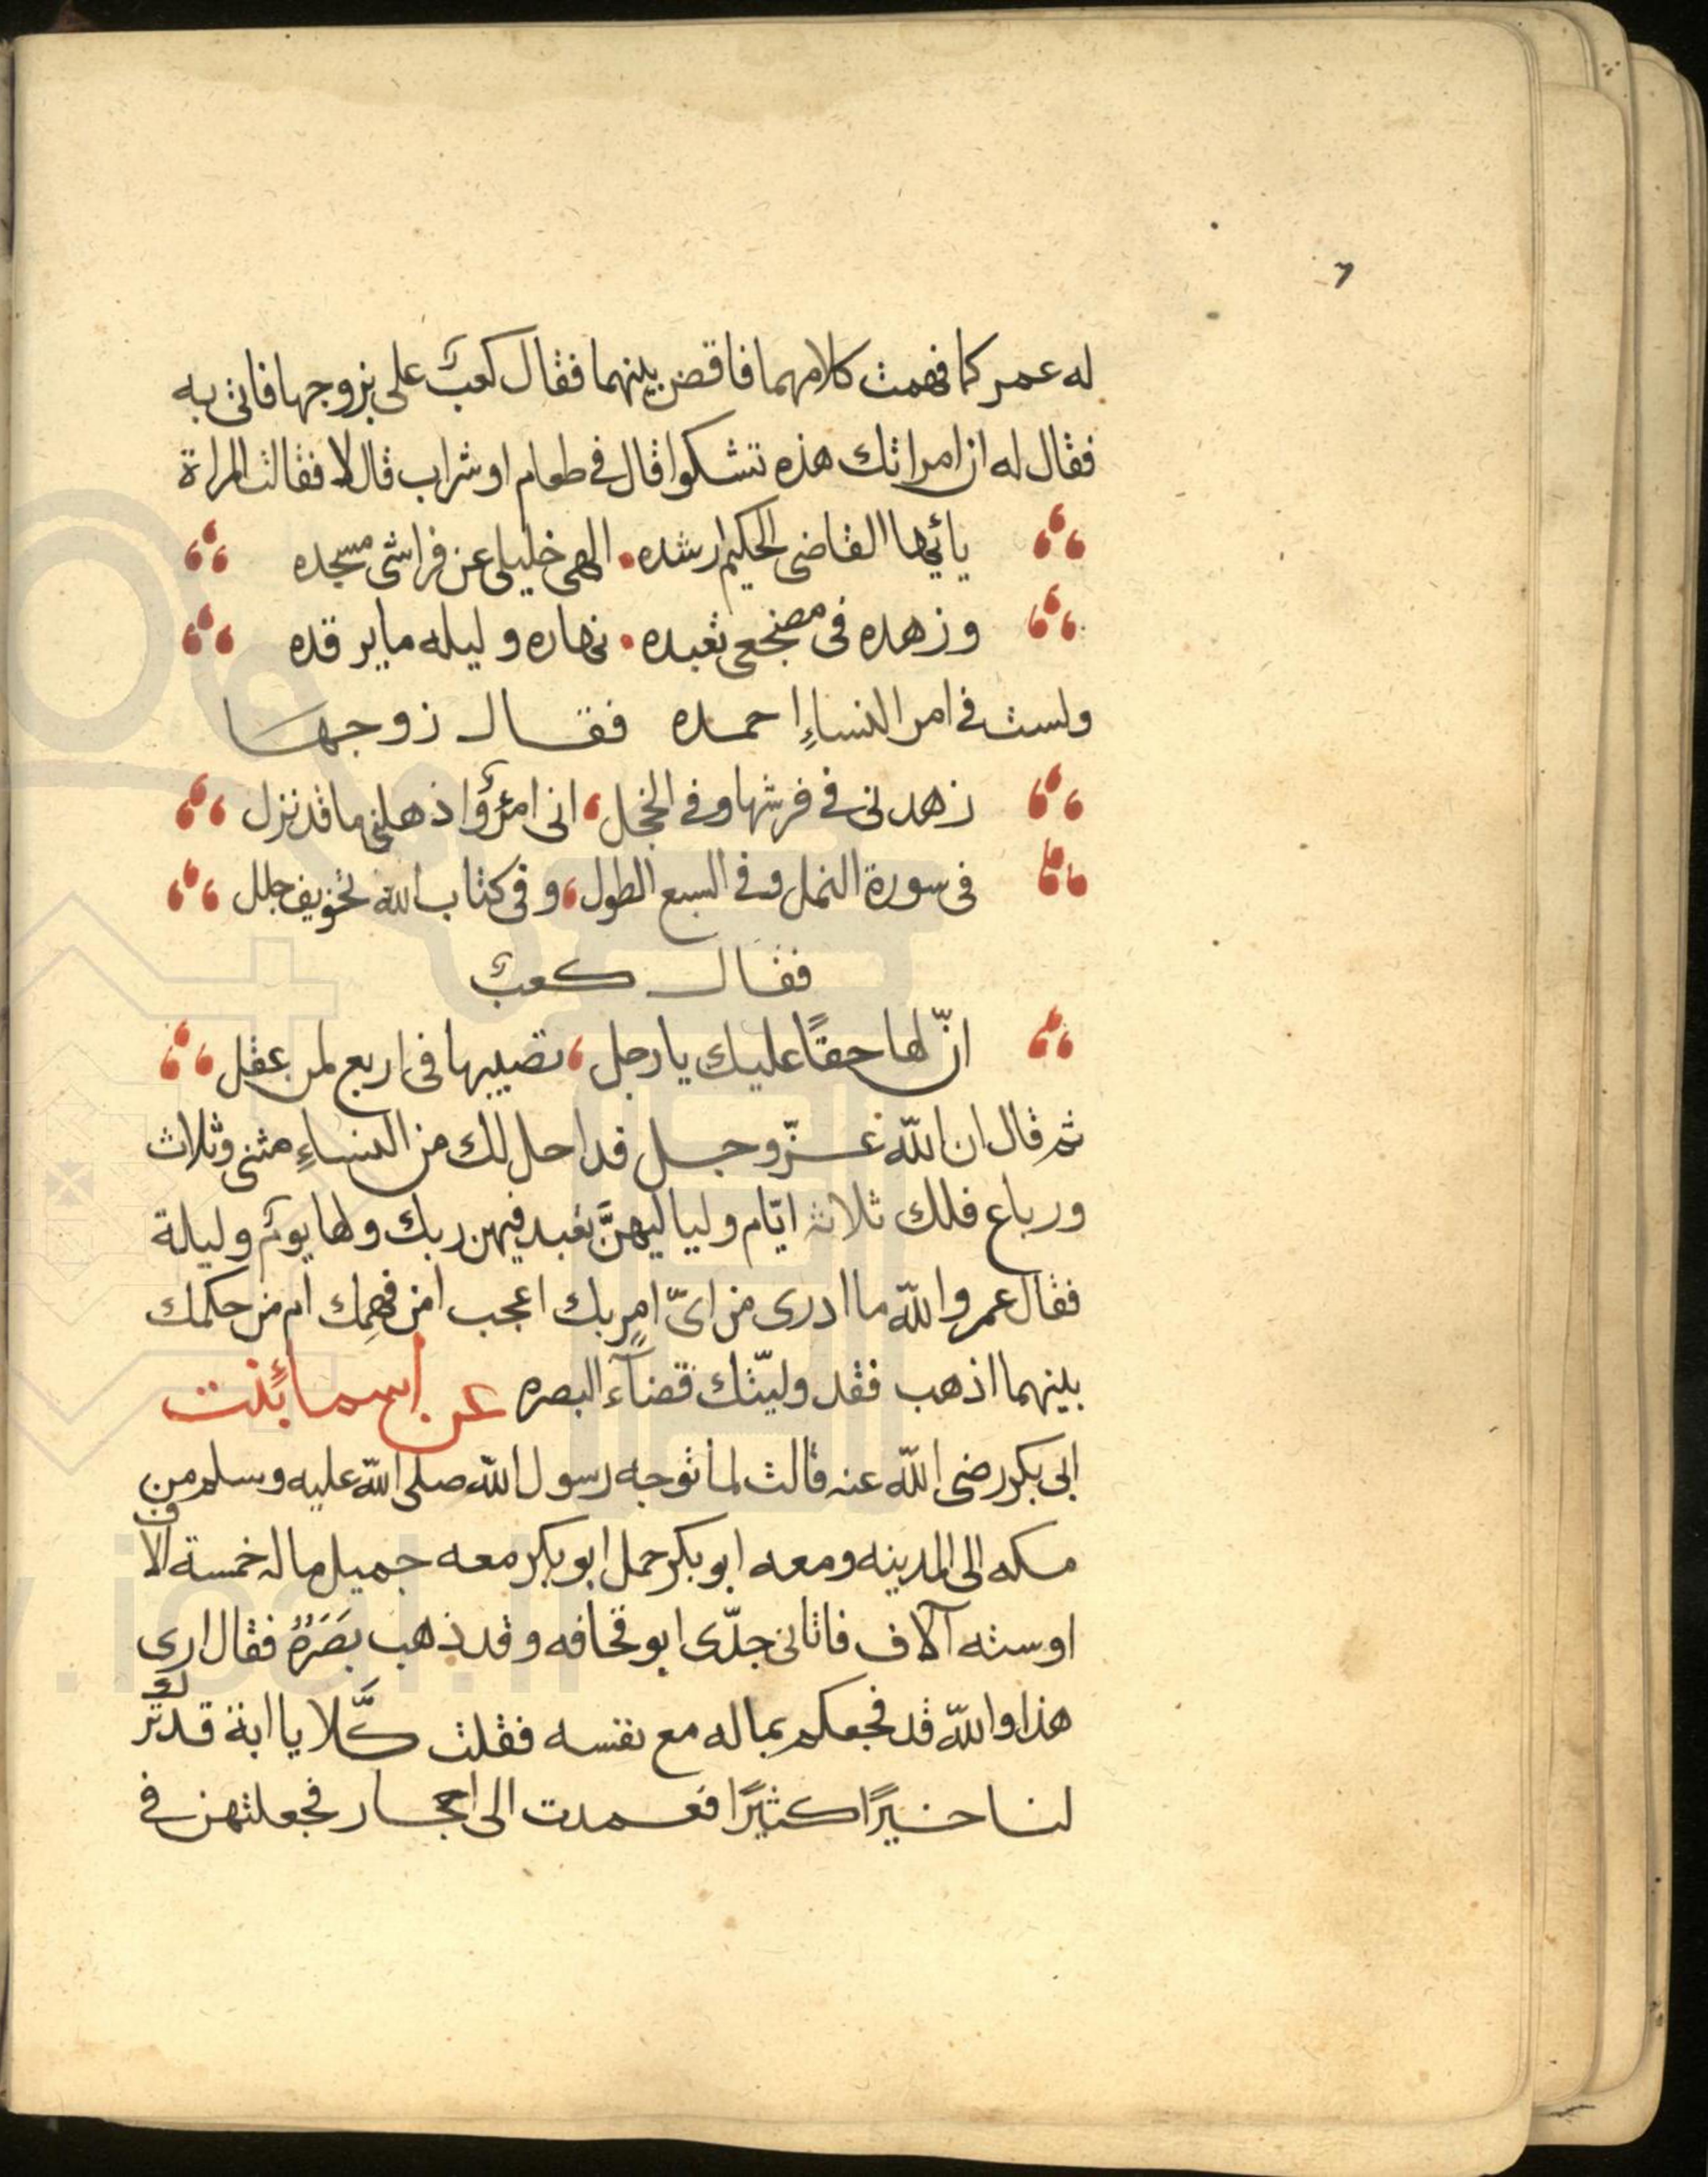 ٦
له عمر كما فهمت كلامهما فاقض بينهما فقال كعب على بزوجها فاتى به
فقال له ان امراتك هذه تتشكوا قال فى طعام او شراب قال لا فقالت المراة
يائيها القاضى الحكيم ارشده • الهى خليلى عن فراشى مسجده
وزهده فى مضجعى تعبده • نهاره وليله ما يرقده
ولست فى امر النساءِ احمده فقال زوجها
زهدنى فى فرشها وفى الخجل، انى امرؤٌ اذهلنى ما قد نزل
فى سورة النمل وفى السبع الطول، وفى كتاب الله تخويف جلل
فقال كعبٌ
انّ لها حقًا عليك يا رجل، تصيبها فى اربع لمن عقل
ثم قال ان الله عزّ وجل قد احل لك من النساءِ مثنى وثلاث
ورباع فلك ثلاثة ايّام ولياليهنَّ تعبد فيهن ربك ولها يومٌ وليلة
فقال عمر والله ما ادرى من اىّ امرٍ بك اعجب امن فهمِك ام من حكمك
بينهما اذهب فقد وليّتك قضآء البصره عن اسما بنت
ابى بكر رضى الله عنه قالت لما توجه رسول الله صلى الله عليه وسلم من
مكه الى المدينه ومعه ابو بكر حمل ابو بكر معه جميل ماله خمسة الاف
او سته آلاف فاتانى جدّى ابو قحافه وقد ذهب بَصَرُهُ فقال ارى
هذا والله قد فجعكم بماله مع نفسه فقلت كَّلا يا ابة قد ترك
لنا خيرًا كثيرًا فعمدت الى احجار فجعلتهن فى